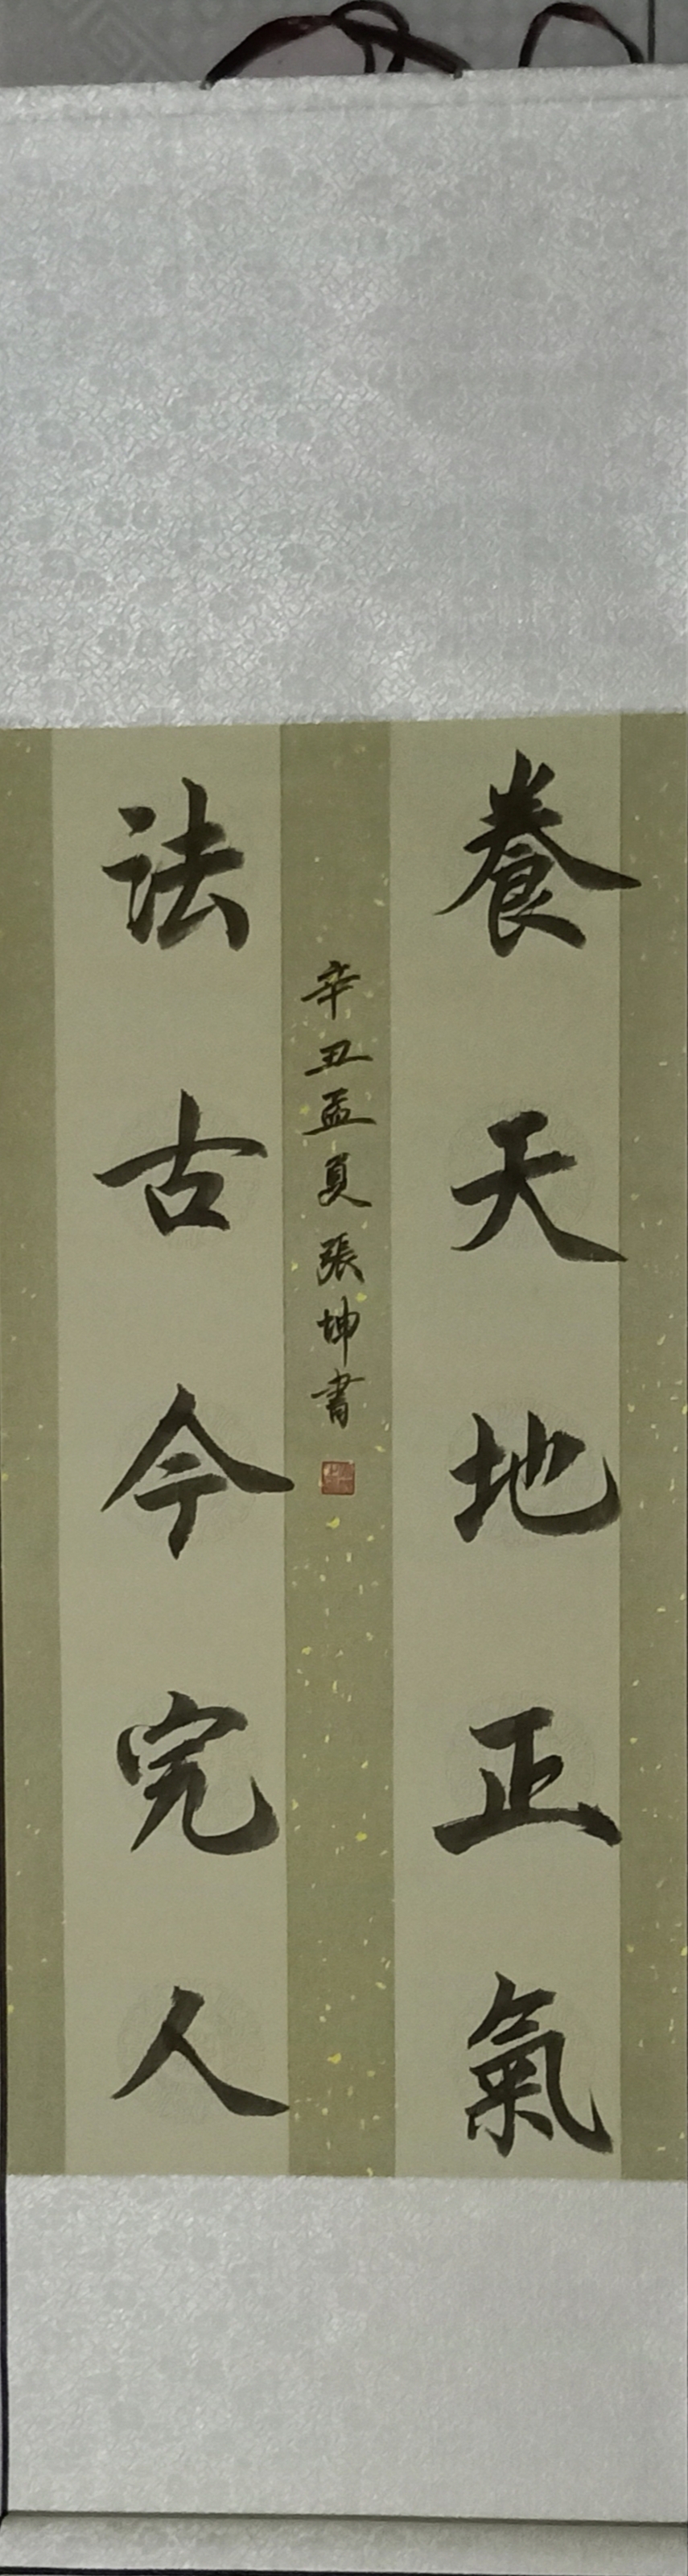 養天地正氣
法古今完人
辛丑孟夏張坤書